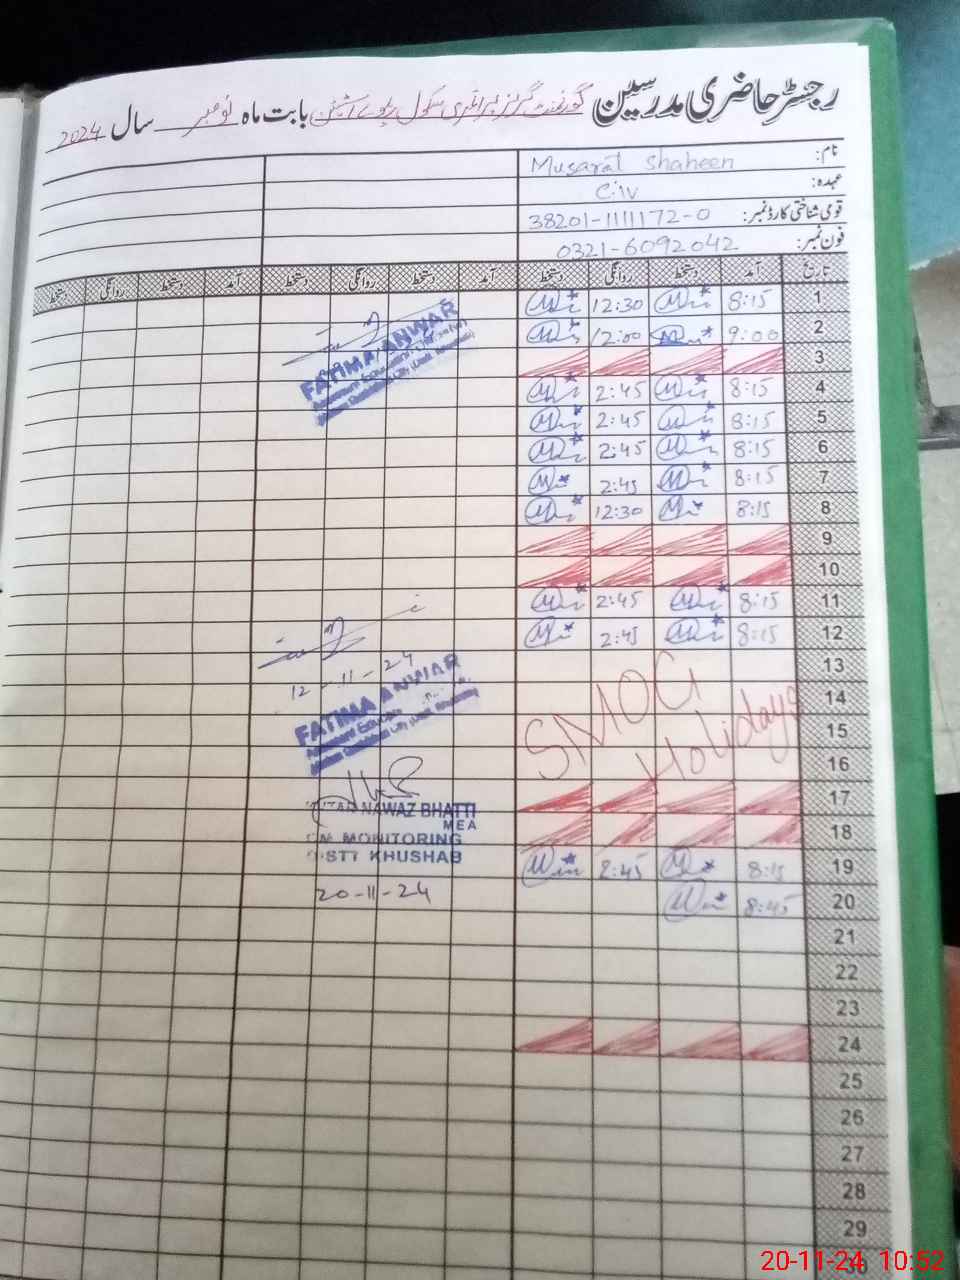 رجسٹر حاضری مدرسین گورنمنٹ گرلز پرائمری سکول ریلوے اسٹیشن بابت ماہ نومبر سال 2024
نام: Musarat Shaheen
عہدہ: C.IV
قومی شناختی کارڈ نمبر: 38201-1111172-0
فون نمبر: 0321-6092042
تاریخ آمد دستخط روانگی دستخط آمد دستخط روانگی دستخط آمد دستخط روانگی دستخط
1 8:15 12:30
2 9:00 12:00
3
4 8:15 2:45
5 8:15 2:45
6 8:15 2:45
7 8:15 2:45
8 8:15 12:30
9
10
11 8:15 2:45
12 8:15 2:45
13
14
15
16
SMOG Holidays
17
18
19 8:15 2:45
20 8:45
21
22
23
24
25
26
27
28
29
30
FATIMA ANWAR
12-11-24
FATIMA ANWAR
NAWAZ BHATTI
MEA
MONITORING
DISTT KHUSHAB
20-11-24
20-11-24 10:52